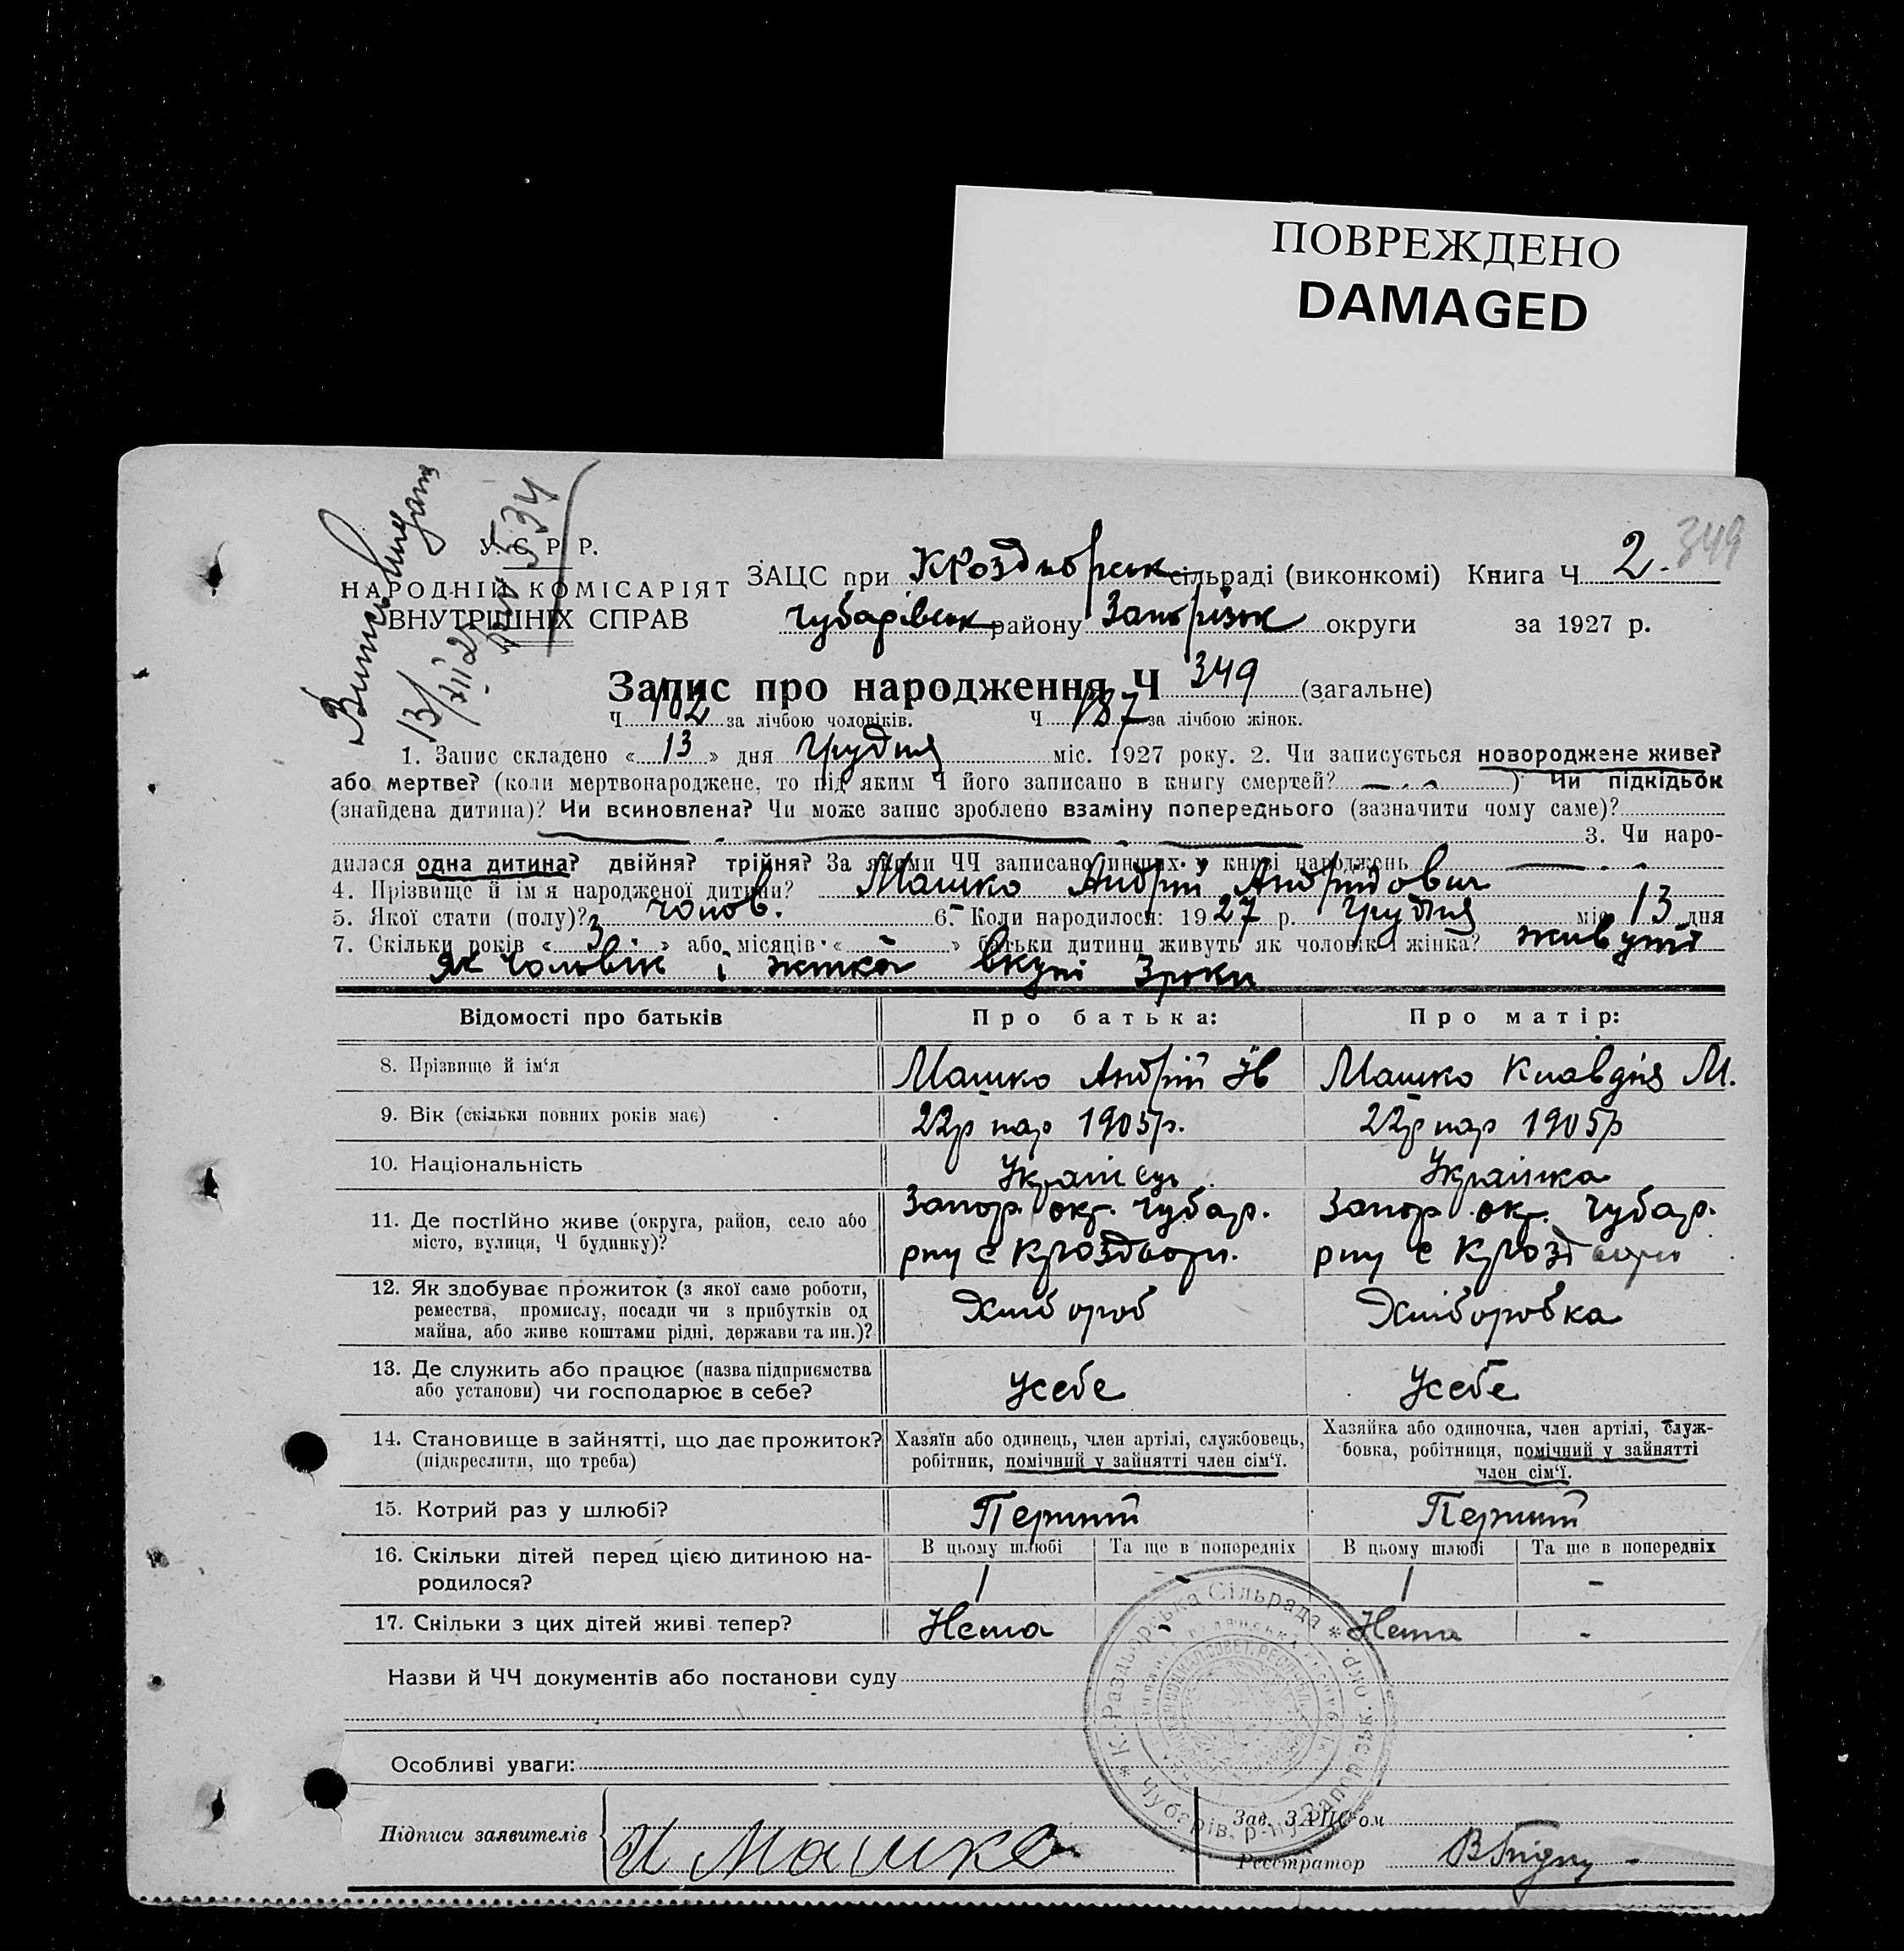 ПОВРЕЖДЕНО
DAMAGED
349
Випись видана
13/XII 27
У.С.Р.Р.
НАРОДНІЙ КОМІСАРІЯТ
ВНУТРІШНІХ СПРАВ
ЗАЦС при КРоздторськ сільраді (виконкомі) Книга Ч 2.
Чубарівськ району Запорізьк округи за 1927 р.
Запис про народження Ч 349 (загальне)
Ч 162 за лічбою чоловіків. Ч 187 за лічбою жінок.
1. Запис складено « 13 » дня Грудня міс. 1927 року. 2. Чи записується новороджене живе?
або мертве? (коли мертвонароджене, то під яким Ч його записано в книгу смертей? ) Чи підкідьок
(знайдена дитина)? Чи всиновлена? Чи може запис зроблено взаміну попереднього (зазначити чому саме)?
3. Чи наро-
дилася одна дитина? двійня? трійня? За якими ЧЧ записано инших у книзі народжень
4. Прізвище й ім'я народженої дитини? Машко Андрій Андрійович
5. Якої стати (полу)? чолов. 6. Коли народилося: 1927 р. Грудня міс 13 дня
7. Скільки років « 3 » або місяців « - » батьки дитини живуть як чоловік і жінка? живуть
як чоловік і жінка вкупі 3 роки
Відомості про батьків Про батька: Про матір:
8. Прізвище й ім'я Машко Андрій Ів Машко Клавдія М.
9. Вік (скільки повних років має) 22р нар 1905р. 22р нар 1905р
10. Національність Українець Українка
11. Де постійно живе (округа, район, село або місто, вулиця, Ч будинку)?
Запор. окр. Чубар. Запор. окр. Чубар.
рну с КРоздвори. рну с КРоздвори
12. Як здобуває прожиток (з якої саме роботи,
ремества, промислу, посади чи з прибутків од
майна, або живе коштами рідні, держави та ин.)? Хлібороб Хліборобка
13. Де служить або працює (назва підприємства
або установи) чи господарює в себе? Усебе Усебе
14. Становище в зайнятті, що дає прожиток?
(підкреслити, що треба)
Хазяїн або одинець, член артілі, службовець,
робітник, помічний у зайнятті член сім'ї.
Хазяйка або одиночка, член артілі, служ-
бовка, робітниця, помічний у зайнятті
член сім'ї.
15. Котрий раз у шлюбі? Перший Перший
16. Скільки дітей перед цією дитиною на-
родилося?
В цьому шлюбі Та ще в попередніх В цьому шлюбі Та ще в попередніх
1 - 1 -
17. Скільки з цих дітей живі тепер? Нема - Нема -
Назви й ЧЧ документів або постанови суду
Особливі уваги:
К-Раздорська Сільрада * Чубарів. р-ну Запорізьк. окр. *
Підписи заявителів И Машко
Зав. ЗАЦС'ом
Реєстратор